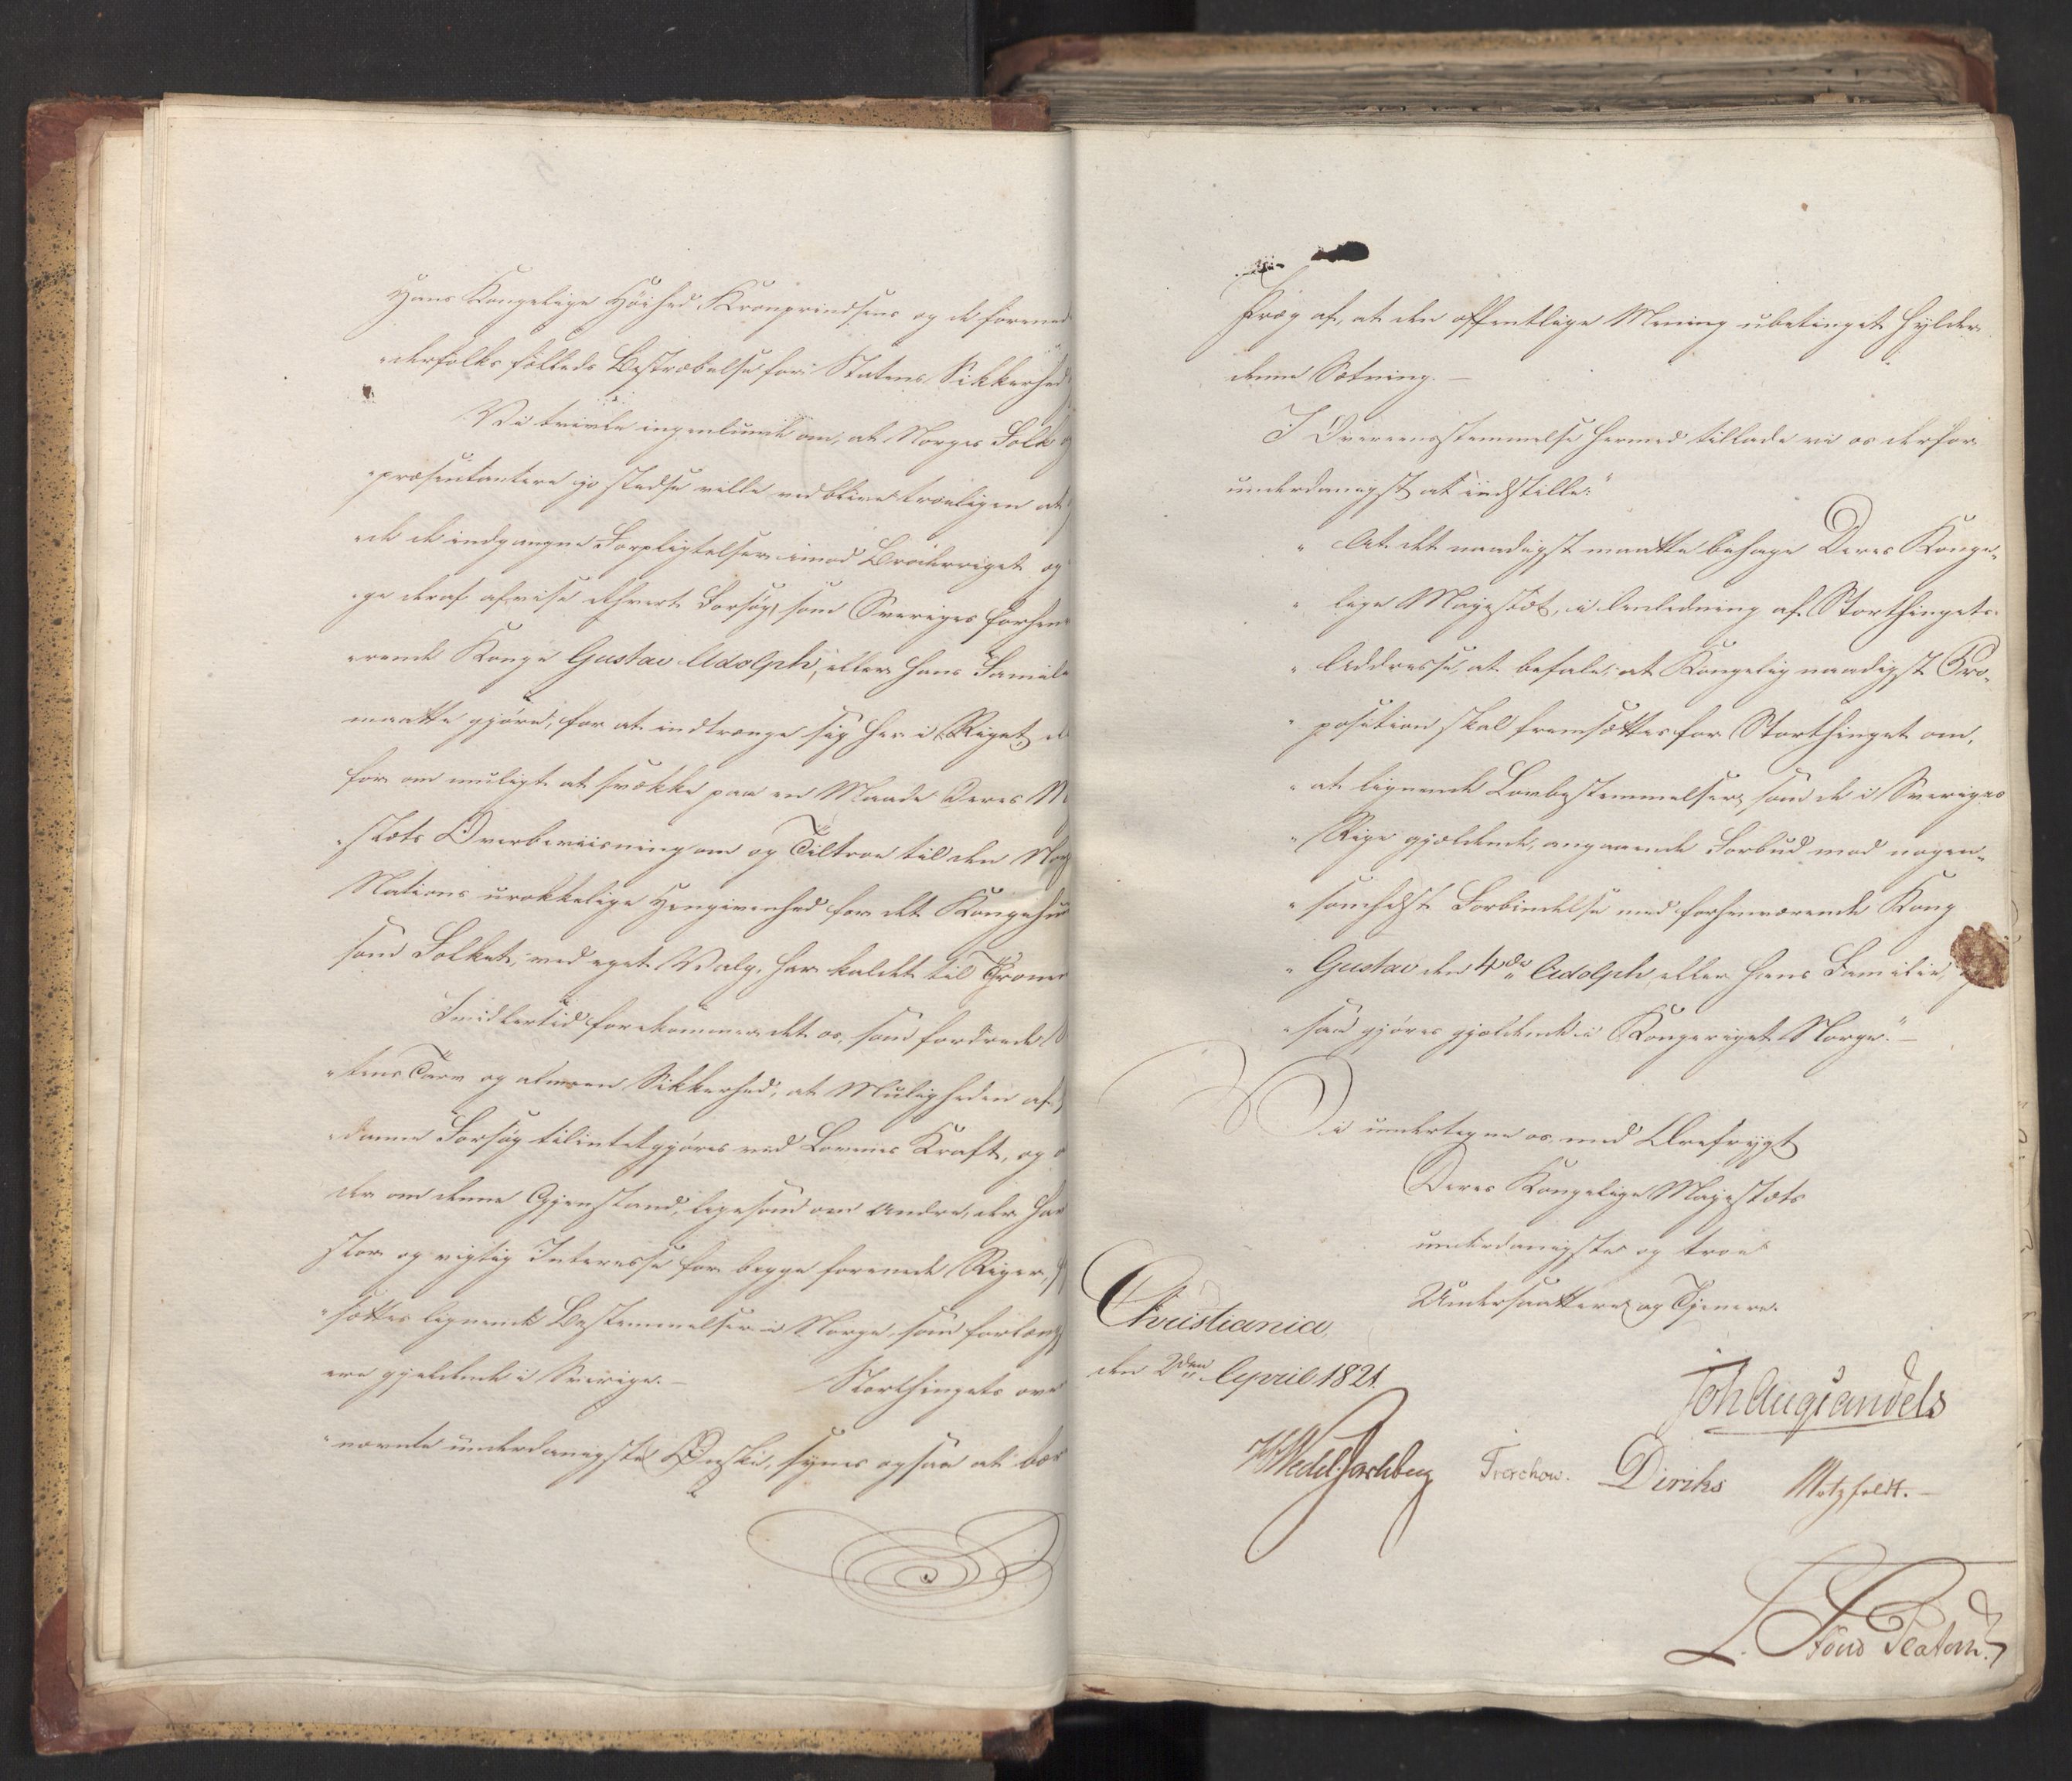 Hans Kongelige Høihed Kronprindsens og de forened
"derfolks fælleds Bestræbelse for Statens Sikkerhed
Vi tvivle ingenlunde om, at Norges Folk
"præsentantere jo stedse ville vedblive troeligen at
"de de indgangne Forpligtelser imod Broderriget og
"ge deraf afvise ethvert Forsøg, som Sveriges forhen
"rende Konge Gustav Adolph, eller hans Famil
maatte gjøre, for at indtrænge sig her i Riget,
for om muligt at svække paa en Maade Deres M
"stæts Overbeviisning om og Tiltroe til den Nor
Nations urokkelige Hengivenhed for det Kongehu
som Folket, ved eget Valg, har kaldet til Thronen
Imidlertid forekommer det os, som fordrede
"tens Tarv og almeen Sikkerhed, at Muligheden af
"danne Forsøg tilintetgjøres ved Lovenes Kraft, og
der om denne Gjenstand, ligesom om andre, der har
stor og vigtig Interesse for begge forenede Riger,
"sættes lignende Bestemmelser i Norge, som forlængst
ere gjældende i Sverige.— Storthingets ove
"nævnte underdanigste Ønske, synes ogsaa at bær
Præg af, at den offentlige Mening ubetinget hylder
denne Sætning.—
I Overeensstemmelse hermed tillade vi os derfor
underdanigst at indstille:
" At det naadigst maatte behage Deres Konge"
" lige Majestæt, i Anledning af Storthingets
" Addresse, at befale, at Kongelig naadigst Pro"
" position skal fremsættes for Storthinget om,
" at lignende Lovbestemmelser, som de i Sveriges
" Rige gjældende, angaaende Forbud mod nogen"
" somhelst Forbindelse med forhenværende Kong
" Gustav den 4de Adolph, eller hans Familie,
" saa gjøres gjældende i Kongeriget Norge."—
Vi undertegne os med Ærefrygt
Deres Kongelige Majestæts
underdanigste og troe
Undersaattere og Tjenere.
Christiania,
den 2den April 1821.
Joh Aug Sandels
HWedel Jarlsberg Treschow. Diriks Motzfeldt.—
L. Stoud Platou.